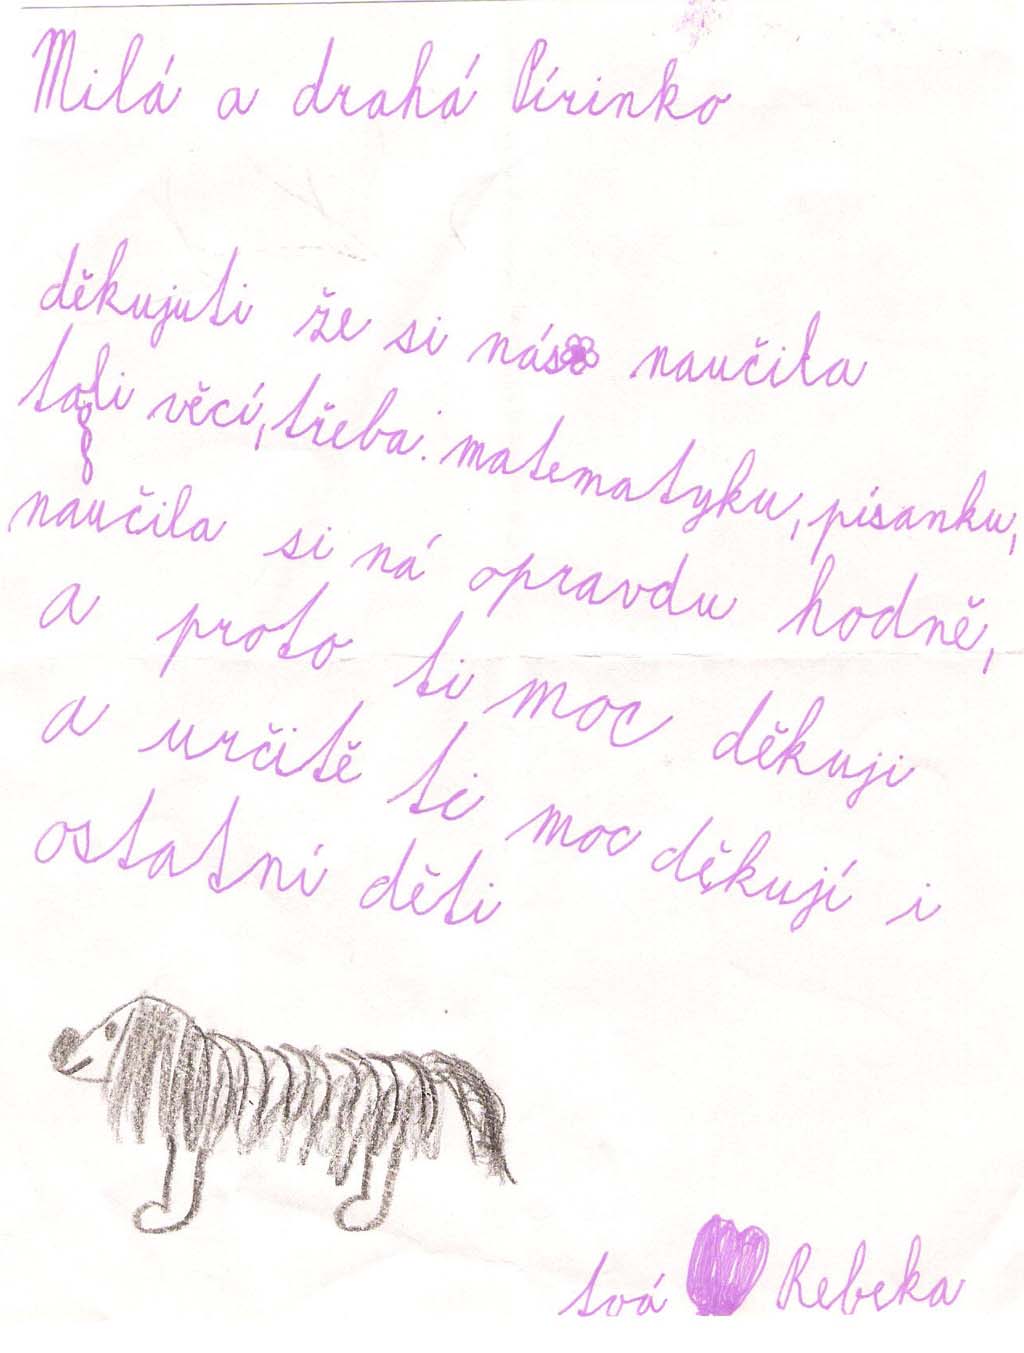 Milá a drahá Pírinko
děkujuti že si nás naučila
toli věcí, třeba: matematyku, písanku,
naučila si ná opravdu hodně,
a proto ti moc děkuji
a určitě ti moc děkují i
ostatní děti
tvá Rebeka